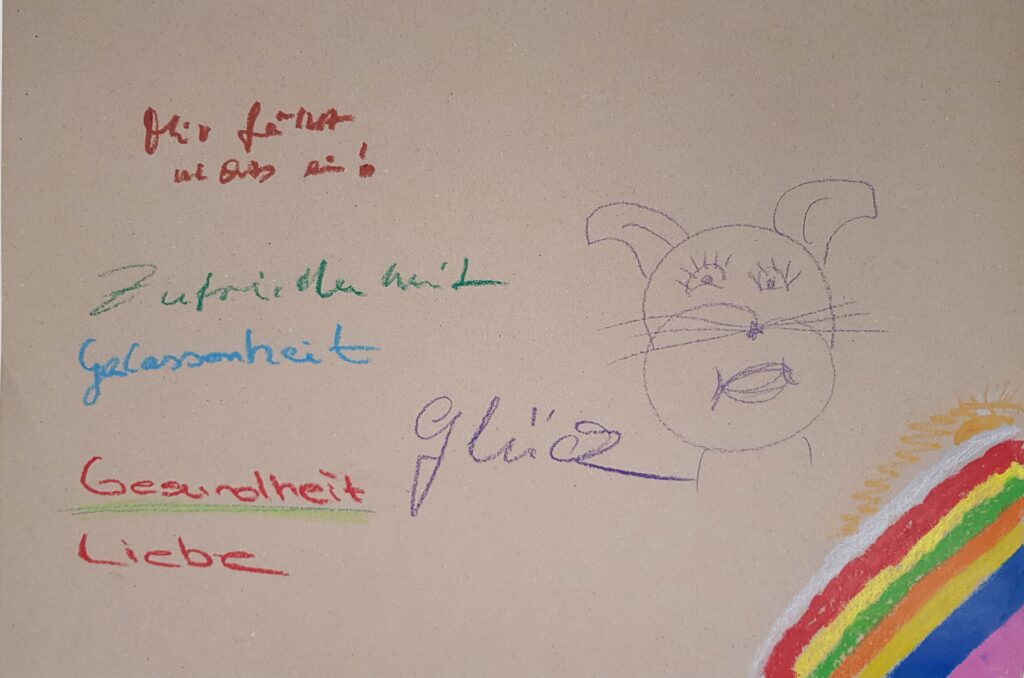 Mir fällt
nichts ein!
Zufriedenheit
Gelassenheit
Glück
Gesundheit
Liebe